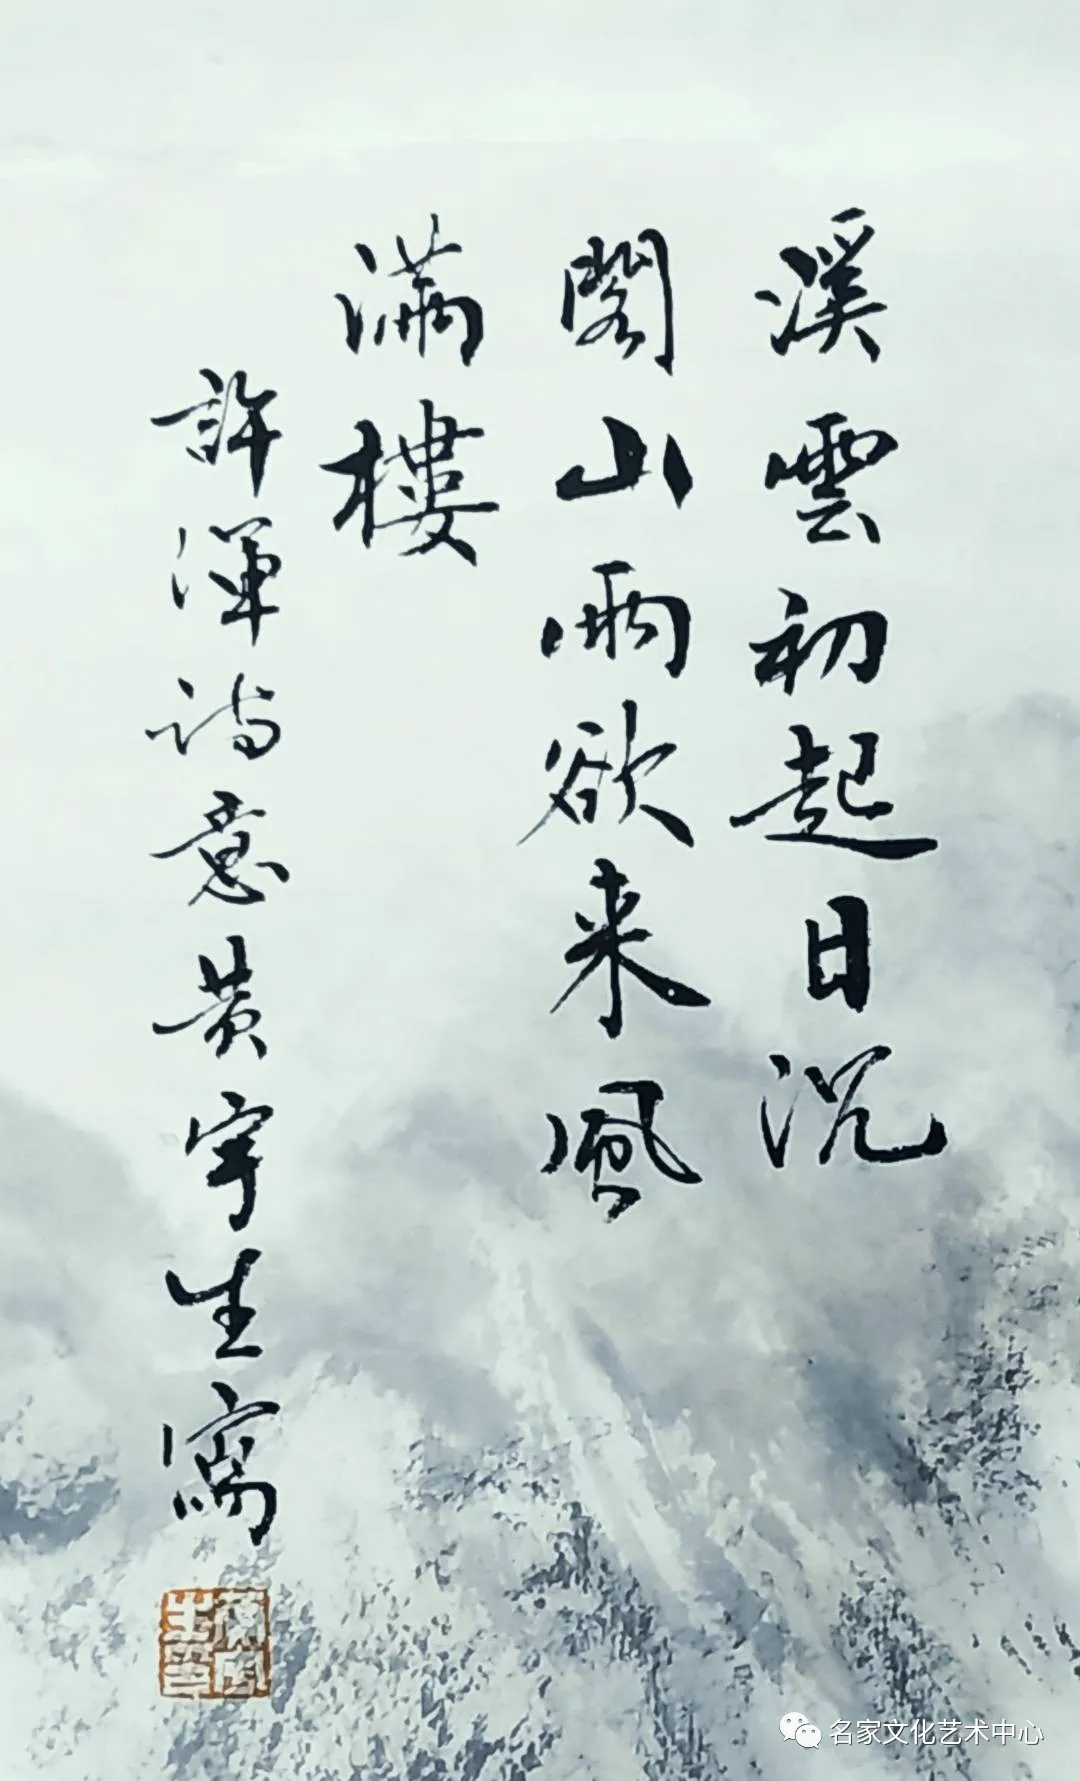 溪雲初起日沉
閣山雨欲来風
滿樓
許渾詩意黄宇生寫
名家文化艺术中心